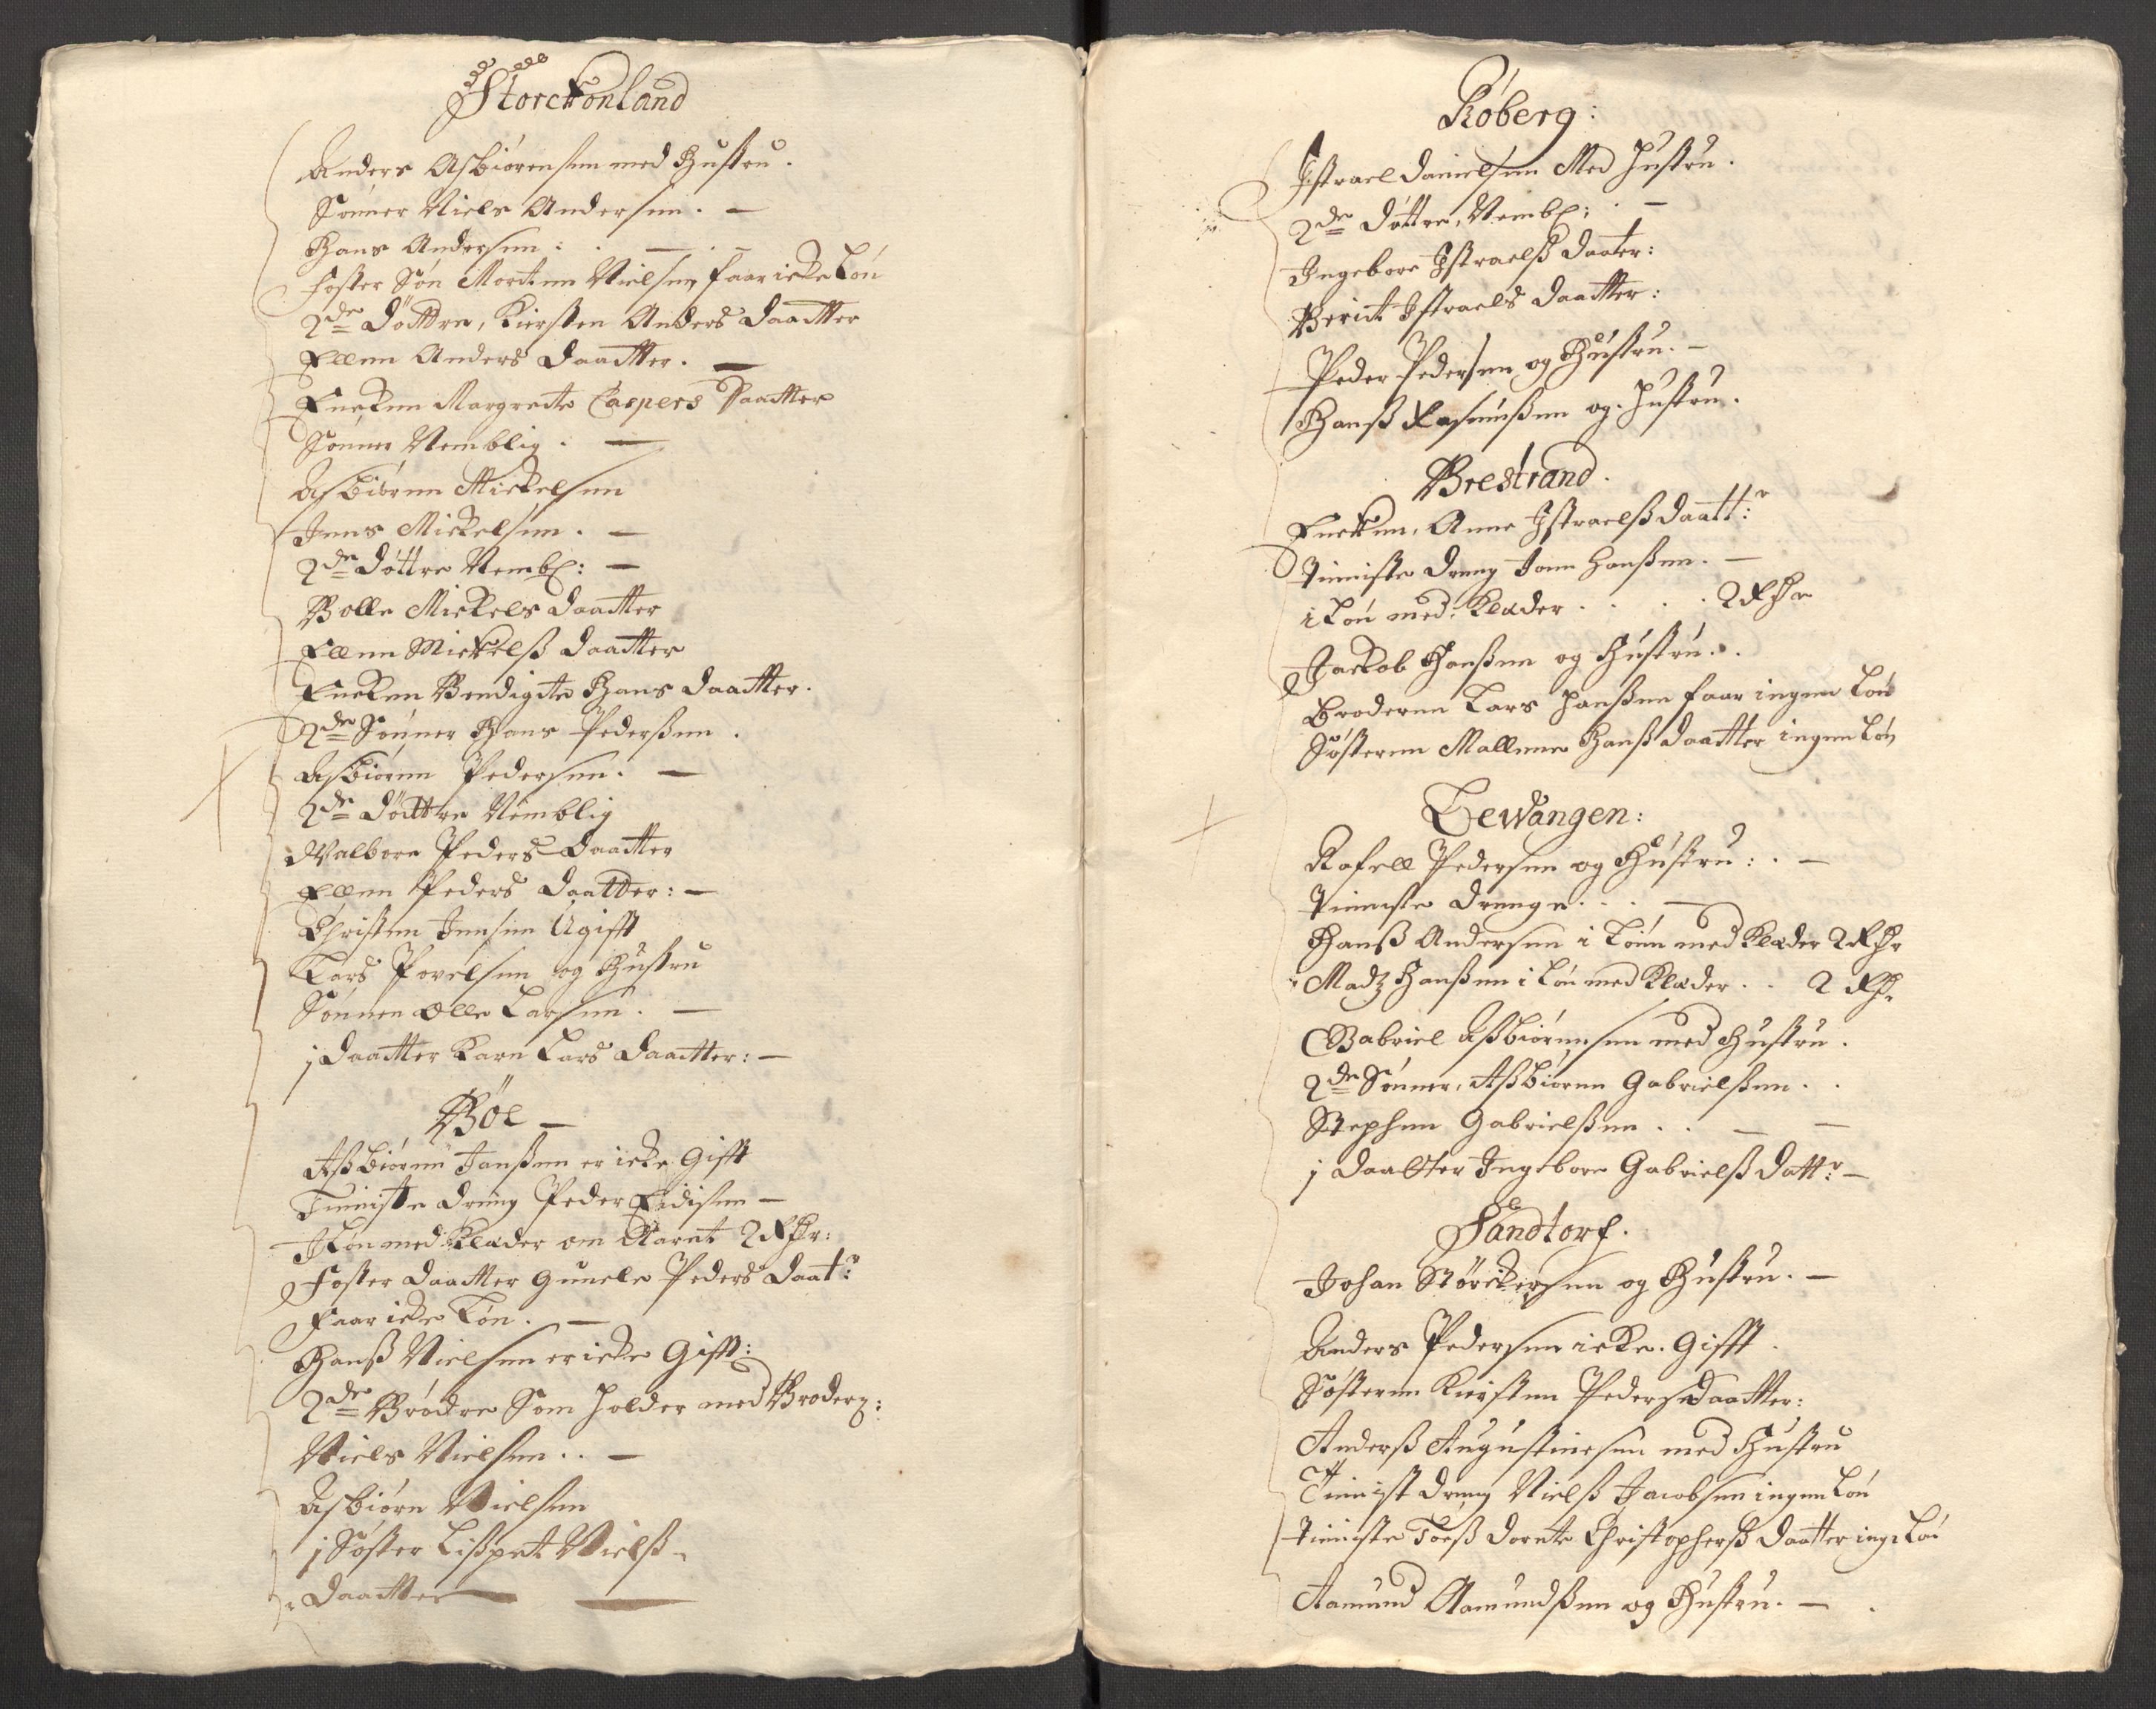 Storckonland
Anders Asbiørensen med Hustru.
Sønner Niels Andersen. —
Hans Andersen: . — . —
Foster Søn Morten Nielsen faar icke Løn
2de Døttre, Kiersten Anders Daatter
Ellen Anders Daatter. —
Encken Margrete Caspers Daatter
Sønner Nemblig. —
Asbiørn Mickelsen
Jens Mickelsen. —
2de Døttre Nembl: —
Volle Mickels Daatter
Ellen Mickelß Daatter
Encken Bendigte Hans Daatter.
2de Sønner Hans Pederßen.
Asbiørn Pedersen. —
2de Døttre Nemblig
Walbore Peders Daatter
Ellen Peders Daatter: —
Christen Jensen Ugifft
Lars Povelsen og Hustru
Sønnen Olle Larsen. —
1 Daatter Karn Lars Daatter: —
Böe —
Aßbiørn Janßen er icke Gifft
Tieniste Dreng Peder Eidisen —
I Løn med Klæder om Aaret 2 Rdr:
Foster Daatter Gunele Peders Daatr:
faar icke Løn. —
Hanß Nielsen er icke Gifft:
2de Brødre Som holder med Broder:
Niels Nielsen. . —
Asbiørn Nielsen
1 Søster Lißpet Nielß
Daatter —
Röberg:
Istrael Danielsen Med Hustru.
2de Døttre, Nembl: . —
Ingebore Istraelß Daater:
Berit Istraels Daatter:
Peder Pedersen og Hustru. —
Hanß Rasmußen og Hustru.
Brestrand.
Encken, Anne Istraelß Daattr:
Tieniste Dreng Jonn Hanßen. —
i Løn med Klæder . . . . 2 Rdr
Jackob Hanßen og Hustru. .
Broderen Lars Hanßen faar ingen Løn
Søsteren Mallene Hanß Daatter ingen Løn
Lewangen:
Rafell Pedersen og Hustru: . —
Tieniste Drenge. . . —
Hanß Andersen i Løn med Klæder 2 Rdr
Madz Hanßen i Løn med Klæder . . 2 Rdr
Gabriel Aßbiørnsen med Hustru.
2de Sønner, Aßbiørn Gabrielßen. .
Stephen Gabrielßen . . — —
1 Daatter Ingebore Gabrielß Dattr: —
Sandtorf.
Johan Størckersen og Hustru. —
Anders Pedersen icke Gifft.
Søsteren Kiersten Peders Daatter:
Anderß Augustinesen med Hustru
Tienist Dreng Nielß Jacobsen ingen Løn
Tieniste Töeß Dorete Christopherß Daatter ing: Løn
Aamund Aamundßen og Hustru. — .